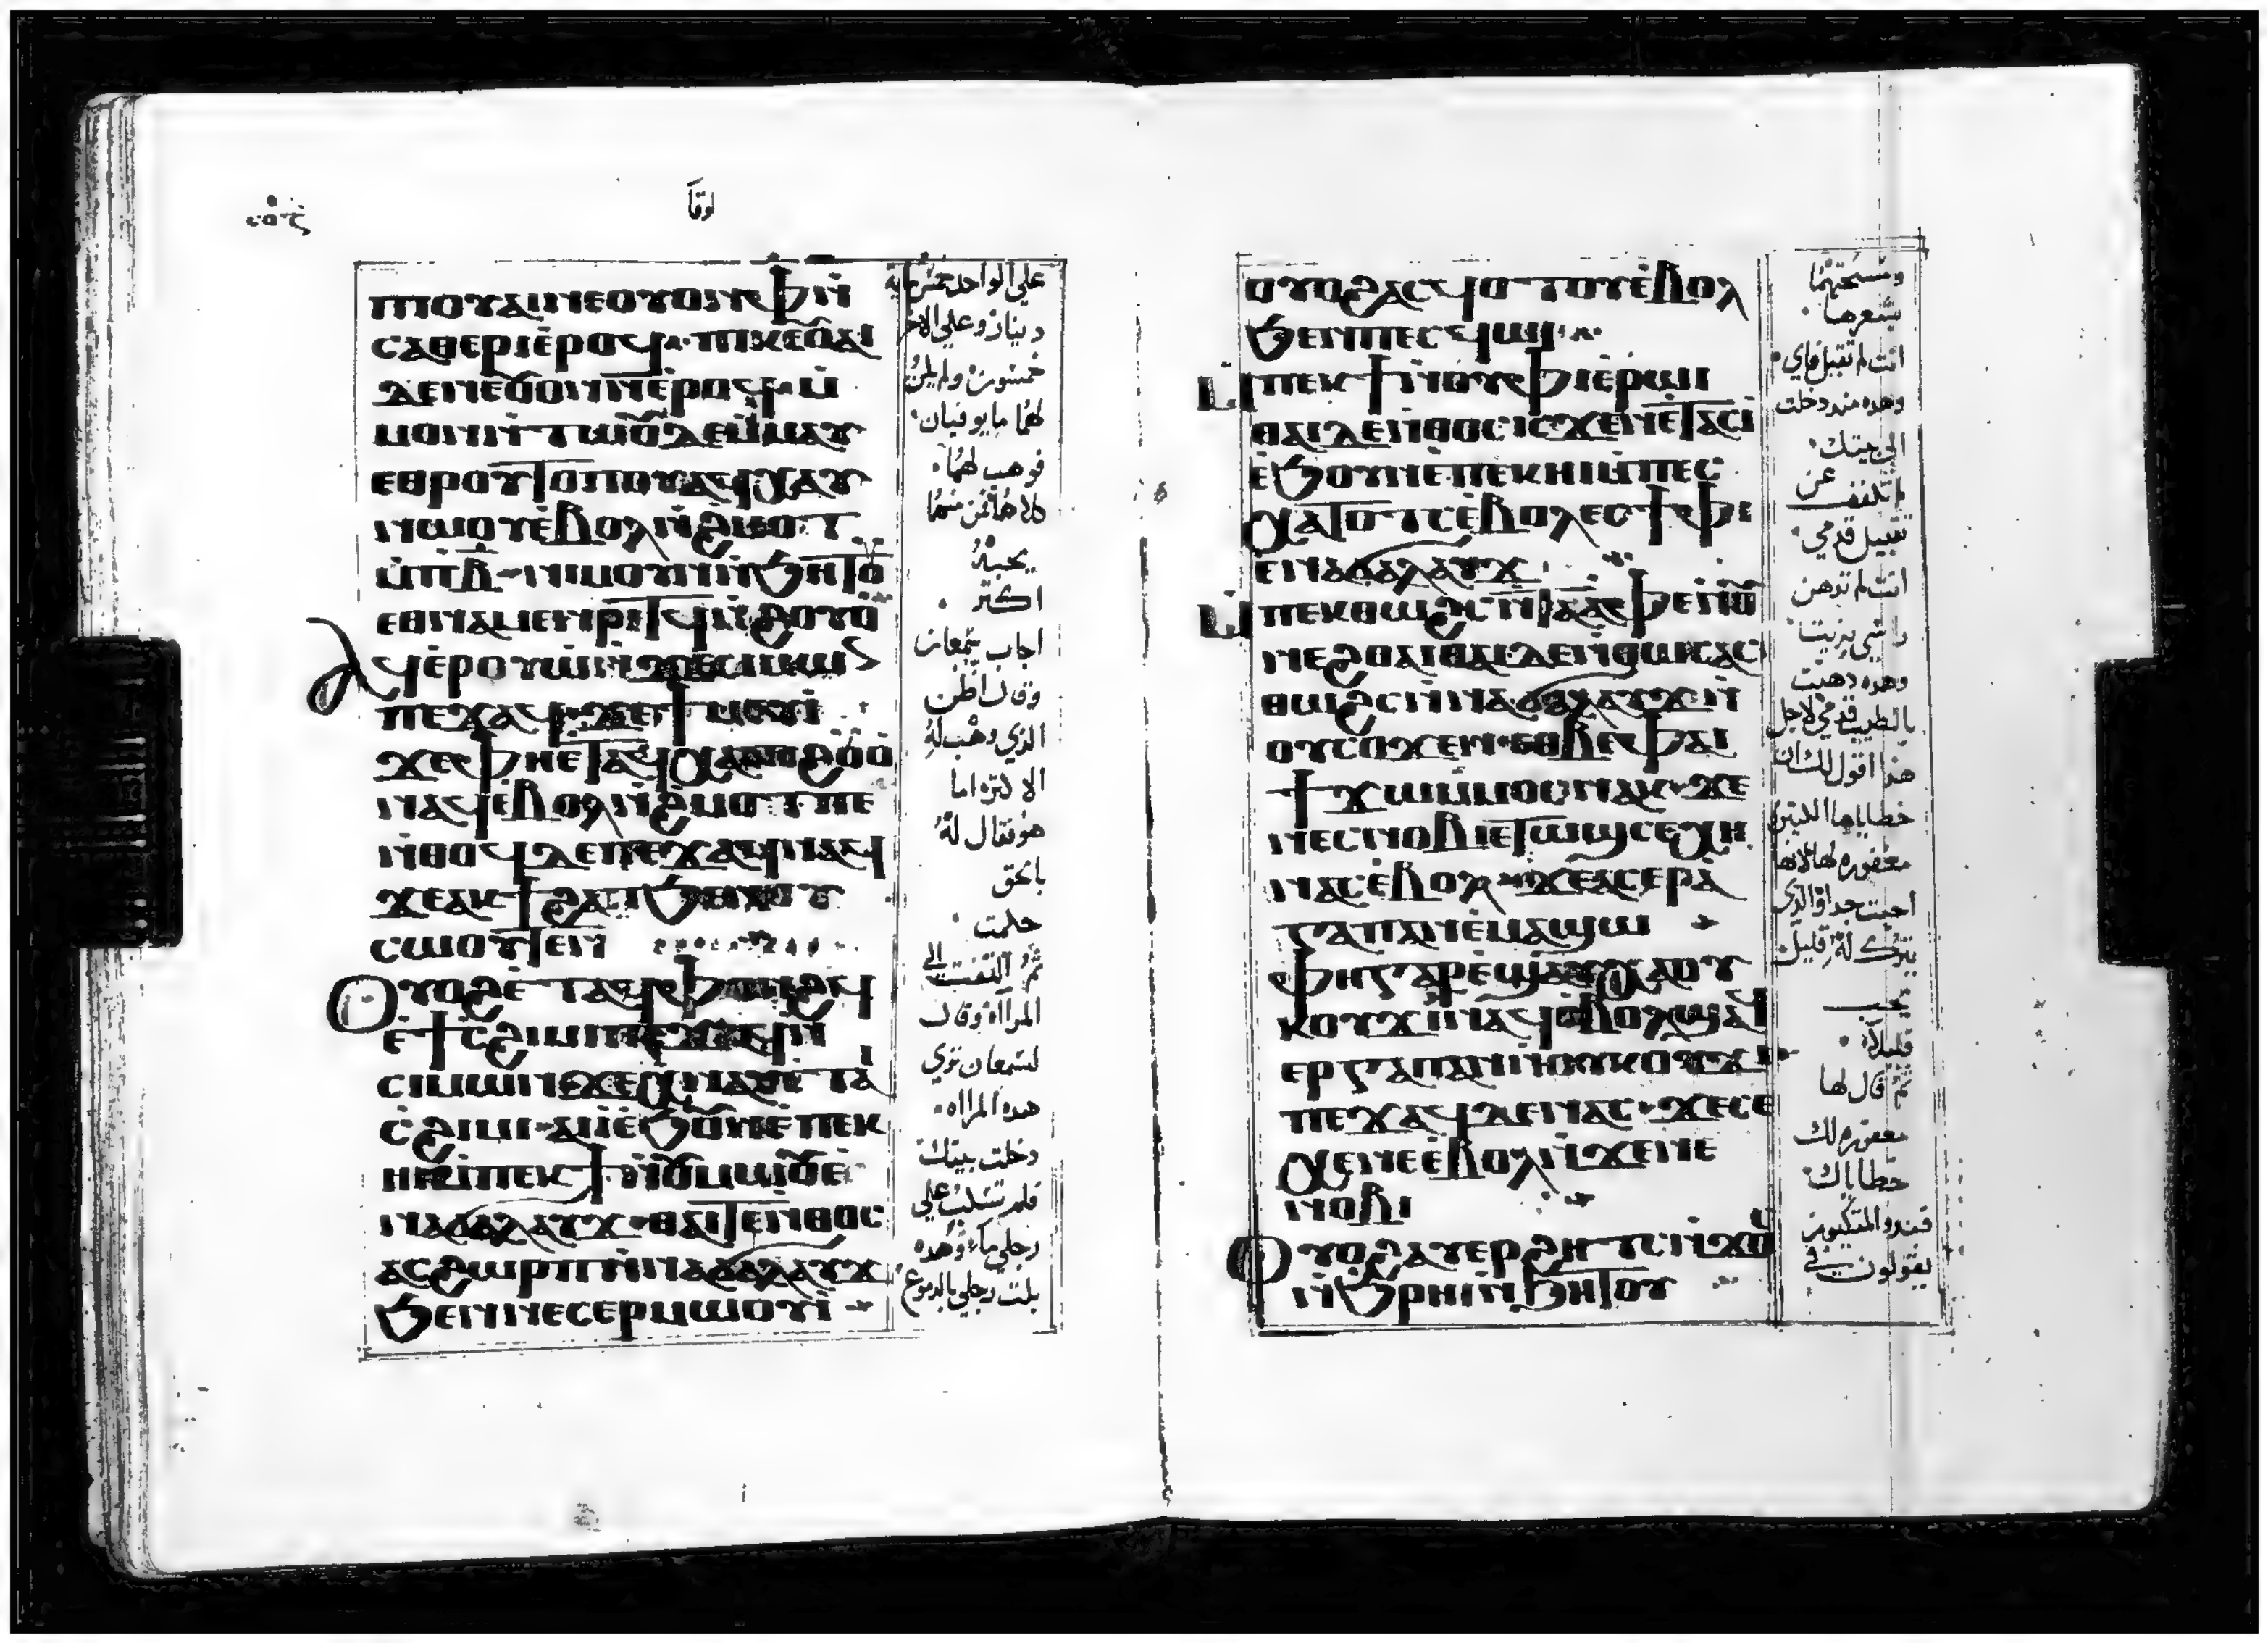 لوقا
ⲡⲓⲟⲩⲁⲓⲛⲉⲟⲩⲟⲛⲫ̅ⲛ̀
ⲥⲁⲑⲉⲣⲓⲉ̀ⲣⲟϥ·ⲡⲓⲕⲉⲟ̅ⲁⲓ
ⲇⲉⲛⲉⲟ̅ⲟⲛⲛ̅ⲉ̀ⲣⲟϥ·ⲙ̀
ⲙⲟⲛⲛ̀ⲧⲱⲟ̅ⲇⲉⲙ̀ⲙⲁⲩ
ⲉⲑⲣⲟⲩⲧⲟⲡⲟⲩⲁϥⲭⲁⲩ
ⲛⲱⲟⲩⲉ̀ⲃⲟⲗⲛ̀ϩⲙⲟⲧ
ⲙ̀ⲡⲃ̅·ⲛⲓⲙⲟⲩⲛⲛ̀ϧⲏⲧⲟ̅
ⲉⲑⲛⲁⲙⲉⲛⲣⲓⲧϥⲛ̀ϩⲟⲩⲟ̀
ⲁϥⲉ̀ⲣⲟⲩⲱ̀ⲛ̀ϫⲉⲥⲓⲙⲱⲛ
ⲡⲉϫⲁϥ·ϫⲉϯⲙⲉⲩⲓ̀
ϫⲉⲫⲏⲉ̀ⲧⲁϥⲭⲁⲡⲓϩⲟ̅ⲟ̀
ⲛⲁϥⲉ̀ⲃⲟⲗⲛ̀ϩⲙⲟⲧ·ⲡⲉ
ⲛ̀ⲑⲟϥⲇⲉⲡⲉϫⲁϥⲛⲁϥ
ϫⲉⲁⲕϯϩⲁⲡϧⲉⲛⲟⲩ
ⲥⲱⲟⲩⲧⲉⲛ
ⲟⲩⲟϩⲉ̀ⲧⲁϥⲫⲟⲛϩϥ
ⲉ̀ϯⲥ̀ϩⲓⲙⲓⲡⲉϫⲁϥⲛ̀
ⲥⲓⲙⲱⲛϫⲉⲭⲛⲁⲩⲉ̀ⲧⲁⲓ
ⲥ̀ϩⲓⲙⲓ·ⲁⲓⲉ̀ϧⲟ̅ⲛⲉ̀ⲡⲉⲕ
ⲏⲓⲙ̀ⲡⲉⲕϯⲛ̀ⲟ̅ⲙⲱⲟ̅ⲉ̀
ⲛⲁϭⲁⲗⲁⲩϫ·ⲑⲁⲓⲧⲉⲛ̀ⲑⲟⲥ
ⲁⲥϩⲱⲣⲡⲛ̀ⲛⲁϭⲁⲗⲁⲩϫ
ϧⲉⲛⲛⲉⲥⲉⲣⲙⲱⲟⲩⲓ̀
على الواحد خمسمايه
دينار وعلى الاخر
خمسون ولم يكن
لهما ما يوفيان·
فوهب لهما·
كلاهما فمن منهما
يحبه
اكثر ·
اجاب سمعان
وقال اظن
الذي وهب له
الاكثر اما
هو فقال له
بالحق
حكمت·
ثم التفت الى
المراة وقال
لسمعان تري
هذه المراه·
دخلت بيتك
فلم تسكب على
رجلي ماء وهذه
بلت رجلي بالدموع
ⲟⲩⲟϩⲁⲥϥⲟⲧⲟⲩⲉ̀ⲃⲟⲗ
ϧⲉⲛⲡⲉⲥϥⲱⲓ
ⲙ̀ⲡⲉⲕϯⲛ̀ⲟⲩⲫⲓⲉ̀ⲣⲱⲓ
ⲑⲁⲓⲇⲉⲛ̀ⲑⲟⲥⲓⲥϫⲉⲛⲉ̀ⲧⲁⲥⲓ̀
ⲉ̀ϧⲟⲩⲛⲉ̀ⲡⲉⲕⲏⲓⲙ̀ⲡⲉⲥ
ⲭⲁⲧⲟⲧⲥⲉ̀ⲃⲟⲗⲉⲥϯⲫⲓ
ⲉⲛⲁϭⲁⲗⲁⲩϫ
ⲙ̀ⲡⲉⲕⲑⲱϩⲥⲛ̀ⲧⲁⲁⲫⲉⲛ̀ⲟ̅
ⲛⲉϩⲑⲁⲓⲑⲁⲓ·ⲇⲉⲛ̀ⲑⲱⲥⲁⲥ
ⲑⲱϩⲥⲛ̀ⲛⲁϭⲁⲗⲁⲩϫⲛ̀
ⲟⲩⲥⲟϫⲉⲛ·ⲉⲑⲃⲉⲫⲁⲓ
ϯϫⲱⲙ̀ⲙⲟⲥⲛⲁⲕ·ϫⲉ
ⲛⲉⲥⲛⲟⲃⲓⲉⲧⲱϣⲥⲉⲭⲏ
ⲛⲁⲥⲉ̀ⲃⲟⲗ·ϫⲉⲁⲥⲉⲣⲁ̀
ⲅⲁⲡⲁⲛⲉ̀ⲙⲁϣⲱ
ⲫⲏⲅⲁⲣⲉ̀ϣⲁⲩⲭⲁⲟⲩ
ⲕⲟⲩϫⲓⲛⲁϥⲉ̀ⲃⲟⲗϣⲁϥ
ⲉⲣⲅⲁⲡⲁⲛⲛ̀ⲟⲩⲕⲟⲩϫⲓ
ⲡⲉϫⲁϥⲇⲉⲛⲁⲥ·ϫⲉⲥⲉ
ⲭⲉⲛⲉⲉ̀ⲃⲟⲗⲛ̀ϫⲉⲛⲉ
ⲛⲟⲃⲓ
ⲟⲩⲟϩⲁⲩⲉⲣϩⲏⲧⲥⲛ̀ϫⲟ̅
ⲛ̀ϧⲣⲏⲓⲛ̀ϧⲏⲧⲟⲩ
ومسحتهما
بشعرها·
انت لم تقبل فاي·
وهذه منذ دخلت
الى بيتك·
لم تكفف عن
تقبيل قدمي·
انت لم تدهن
راسي بزيت·
وهذه دهنت
بالطيب قدمي لاجل
هذا اقول لك ان
خطاياها الكثيره
مغفوره لها لانها
احبت جدا والذي
يترك له قليل
يحب
قليلا·
ثم قال لها
مغفوره لك
خطاياك·
فبدو المتكيون
يقولون في